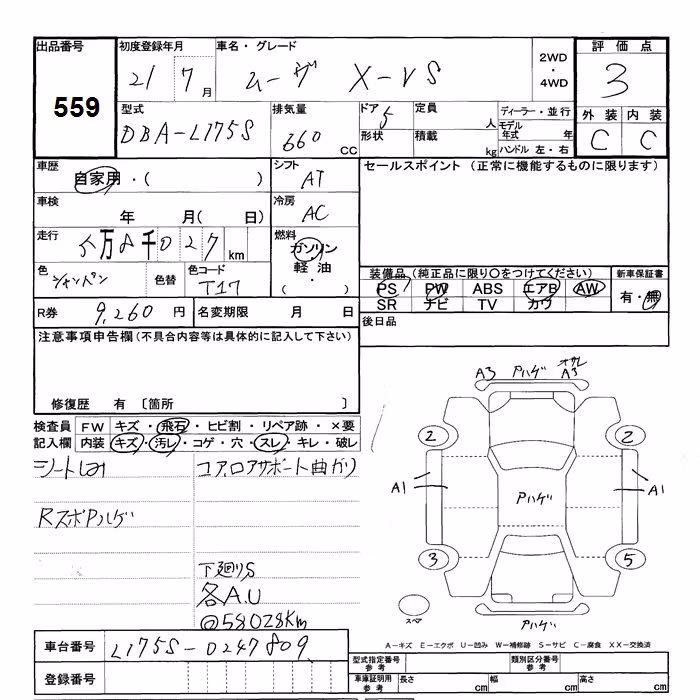 出品番号
559
初度登録年月
21 7月
車名・グレード
ムーヴ X-VS
2WD・4WD
評価点
3
型式
DBA-L175S
排気量
660 CC
ドア 5
形状
定員 人
積載 kg
ディーラー・並行
モデル年式 年
ハンドル 左・右
外装 内装
C C
車歴
自家用・( )
シフト
AT
セールスポイント (正常に機能するものに限ります)
車検
年 月( 日)
冷房
AC
走行
5万8千027km
燃料
ガソリン
軽油
・( )
色
シャンパン
色替
色コード
T17
装備品(純正品に限り○をつけてください)
PS PW ABS エアB AW
SR ナビ TV カワ
新車保証書
有・無
R券 9,260 円
名変期限 月 日
後日品
注意事項申告欄(不具合内容等は具体的に記入して下さい)
修復歴 有 〔箇所 〕
検査員記入欄
FW キズ・飛石・ヒビ割・リペア跡・×要
内装 キズ・汚レ・コゲ・穴・スレ・キレ・破レ
シートしみ
コア,ロアサポート曲がり
RスポPハゲ
下廻りS
各A.U
@58028Km
A3 Pハゲ オサレ A3
2 2
A1 Pハゲ A1
3 5
スペア
Pハゲ
A-キズ E-エクボ U-凹み W-補修跡 S-サビ C-腐食 XX-交換済
車台番号 L175S-0247809
登録番号
型式指定番号参考
類別区分番号参考
車庫証明用参考
長さ cm 幅 cm 高さ cm